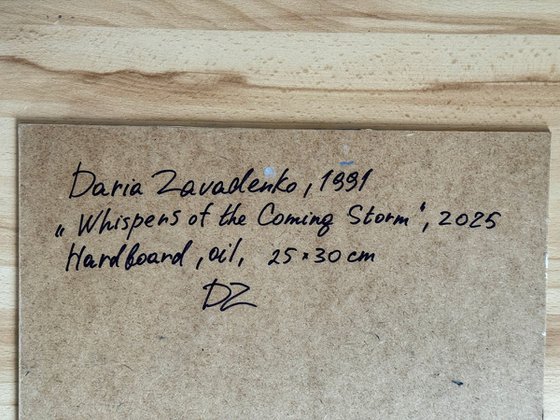 Daria Zavadenko, 1991
„Whispers of the Coming Storm“, 2025
Hardboard, oil, 25×30 cm
DZ